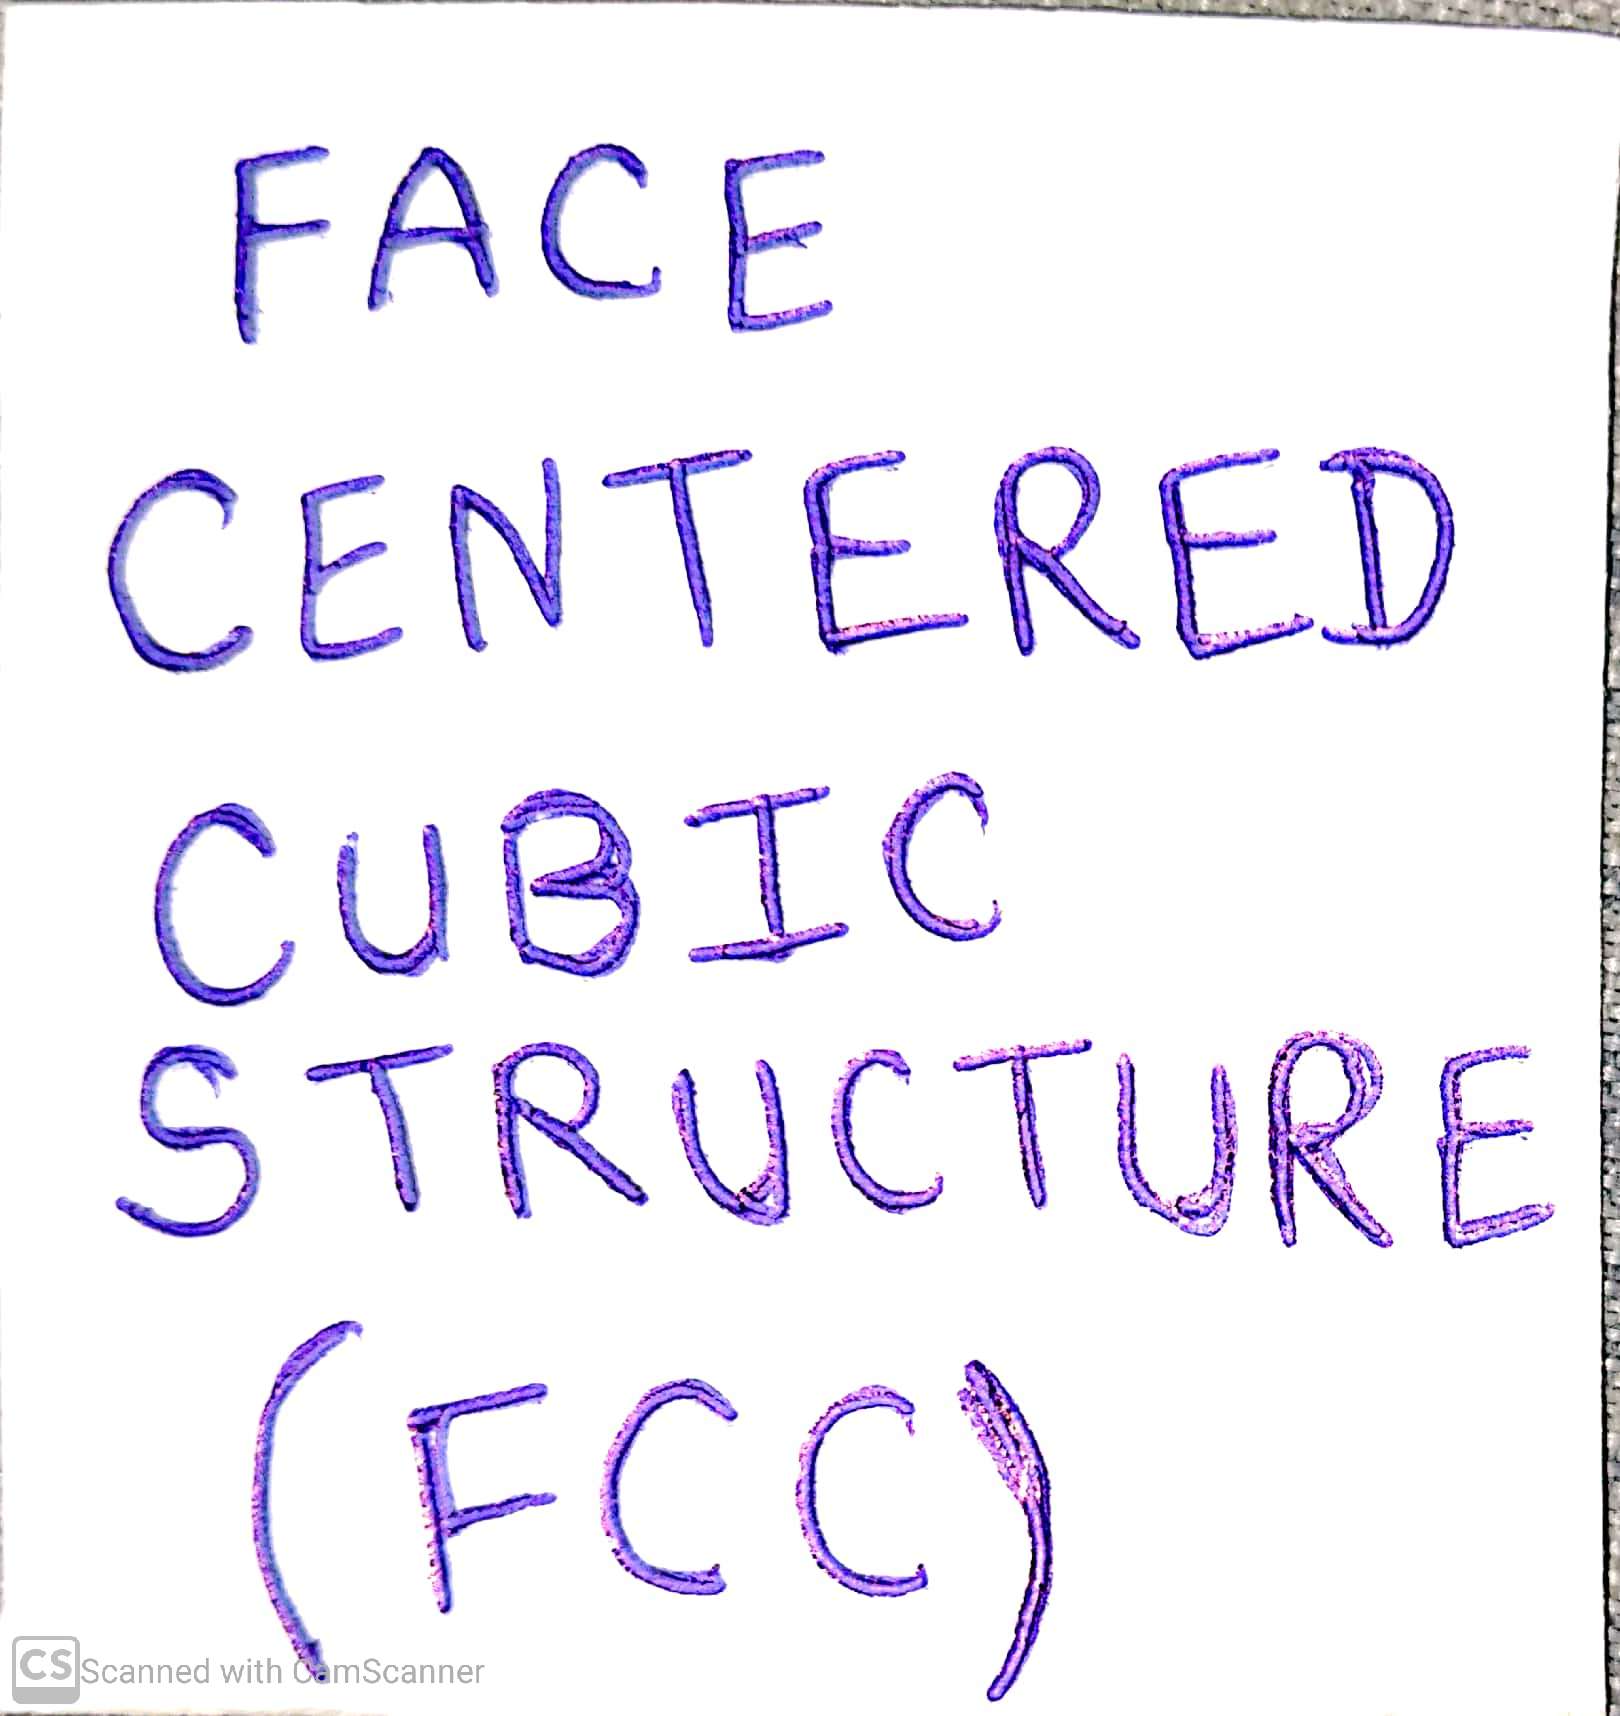 FACE
CENTERED
CUBIC
STRUCTURE
(FCC)
CS Scanned with CamScanner